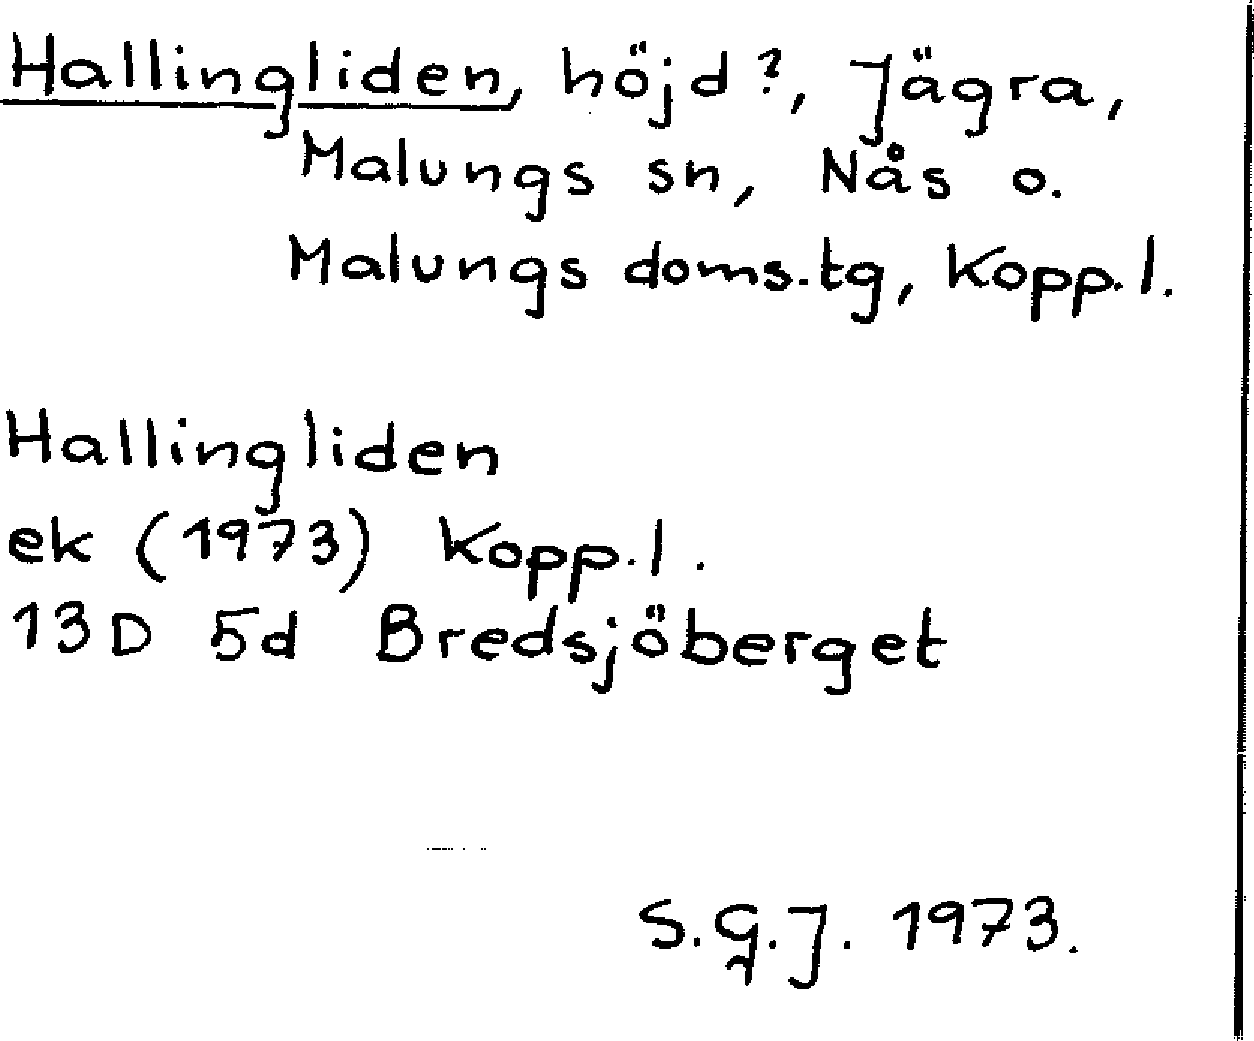 Hallingliden, höjd?, Jägra,
Malungs sn, Nås o.
Malungs doms.tg, Kopp.l.
Hallingliden
ek (1973) Kopp.l.
13D 5d Bredsjöberget
S.G.J. 1973.